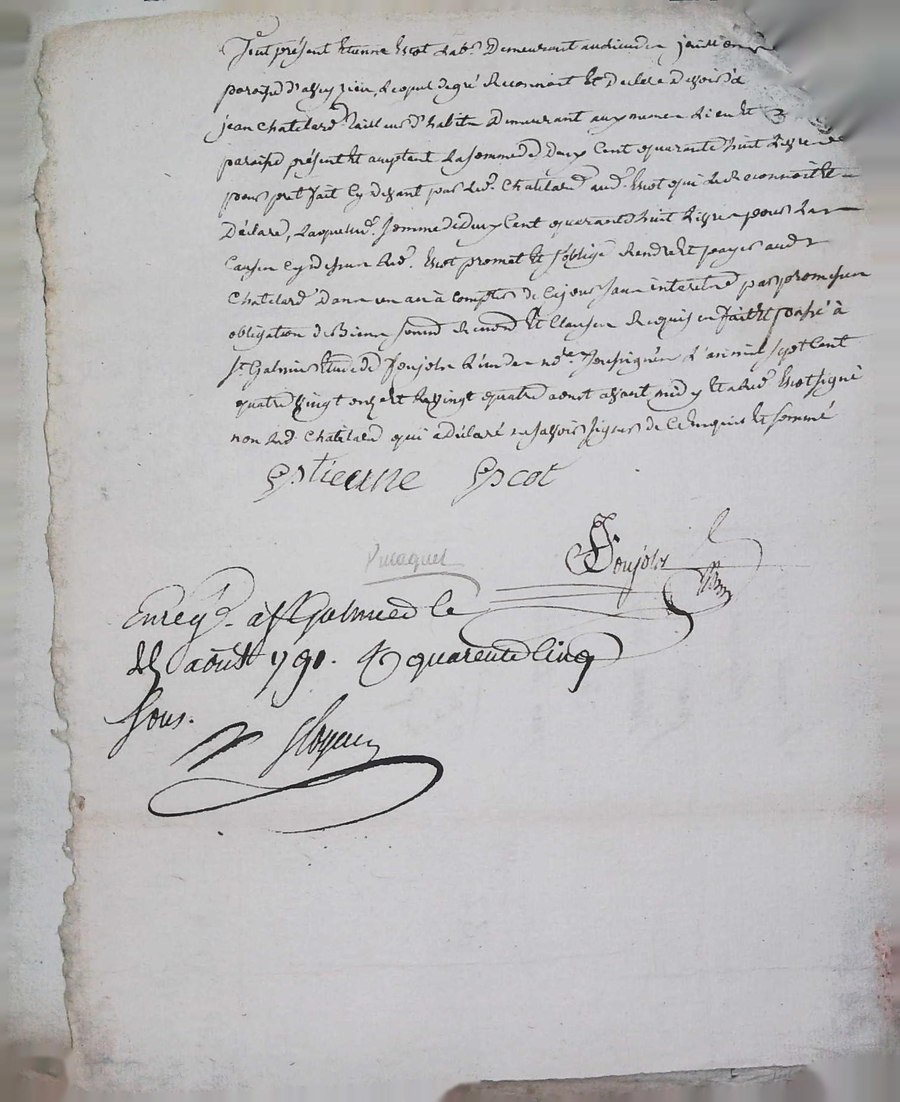 fut présent Etienne Escot lab.r Demeurant au lieu de
paroisse d'aveyzieu, Lequel de gré Reconnoit Et Déclare devoir à
jean Chatelard Tailleur d'habits Demeurant aux meme Lieu et
paroisse présent Et acceptant La somme de Deux Cent quarante huit Livres
pour pret fait Cy devant par led.t Chatelard aud.t Escot qui Le Reconnoit Et
Déclare, Laquelle d.e somme de Deux Cent quarante huit Livres pour la
Cause cy dessus led.t Escot promet Et s'oblige Rendre Et payer aud.t
Chatelard Dans un an à compter de Ce jour sans interet par promesse
obligation de Biens soumis Renond Et Clauses Requis fait Et passé à
St Galmier Etude de Joujoly L'un des no.res soussignés L'an mil sept Cent
quatre vingt onze Et Le vingt quatre aoust avant midy Et a led.t Escot signé
non led. Chatelard qui a Déclaré ne savoir signer de Ce Enquis Et sommé
Estienne Escot
Joujoly
Enreg.é à St Galmier le
25 août 1791. R quarente cinq
sous.